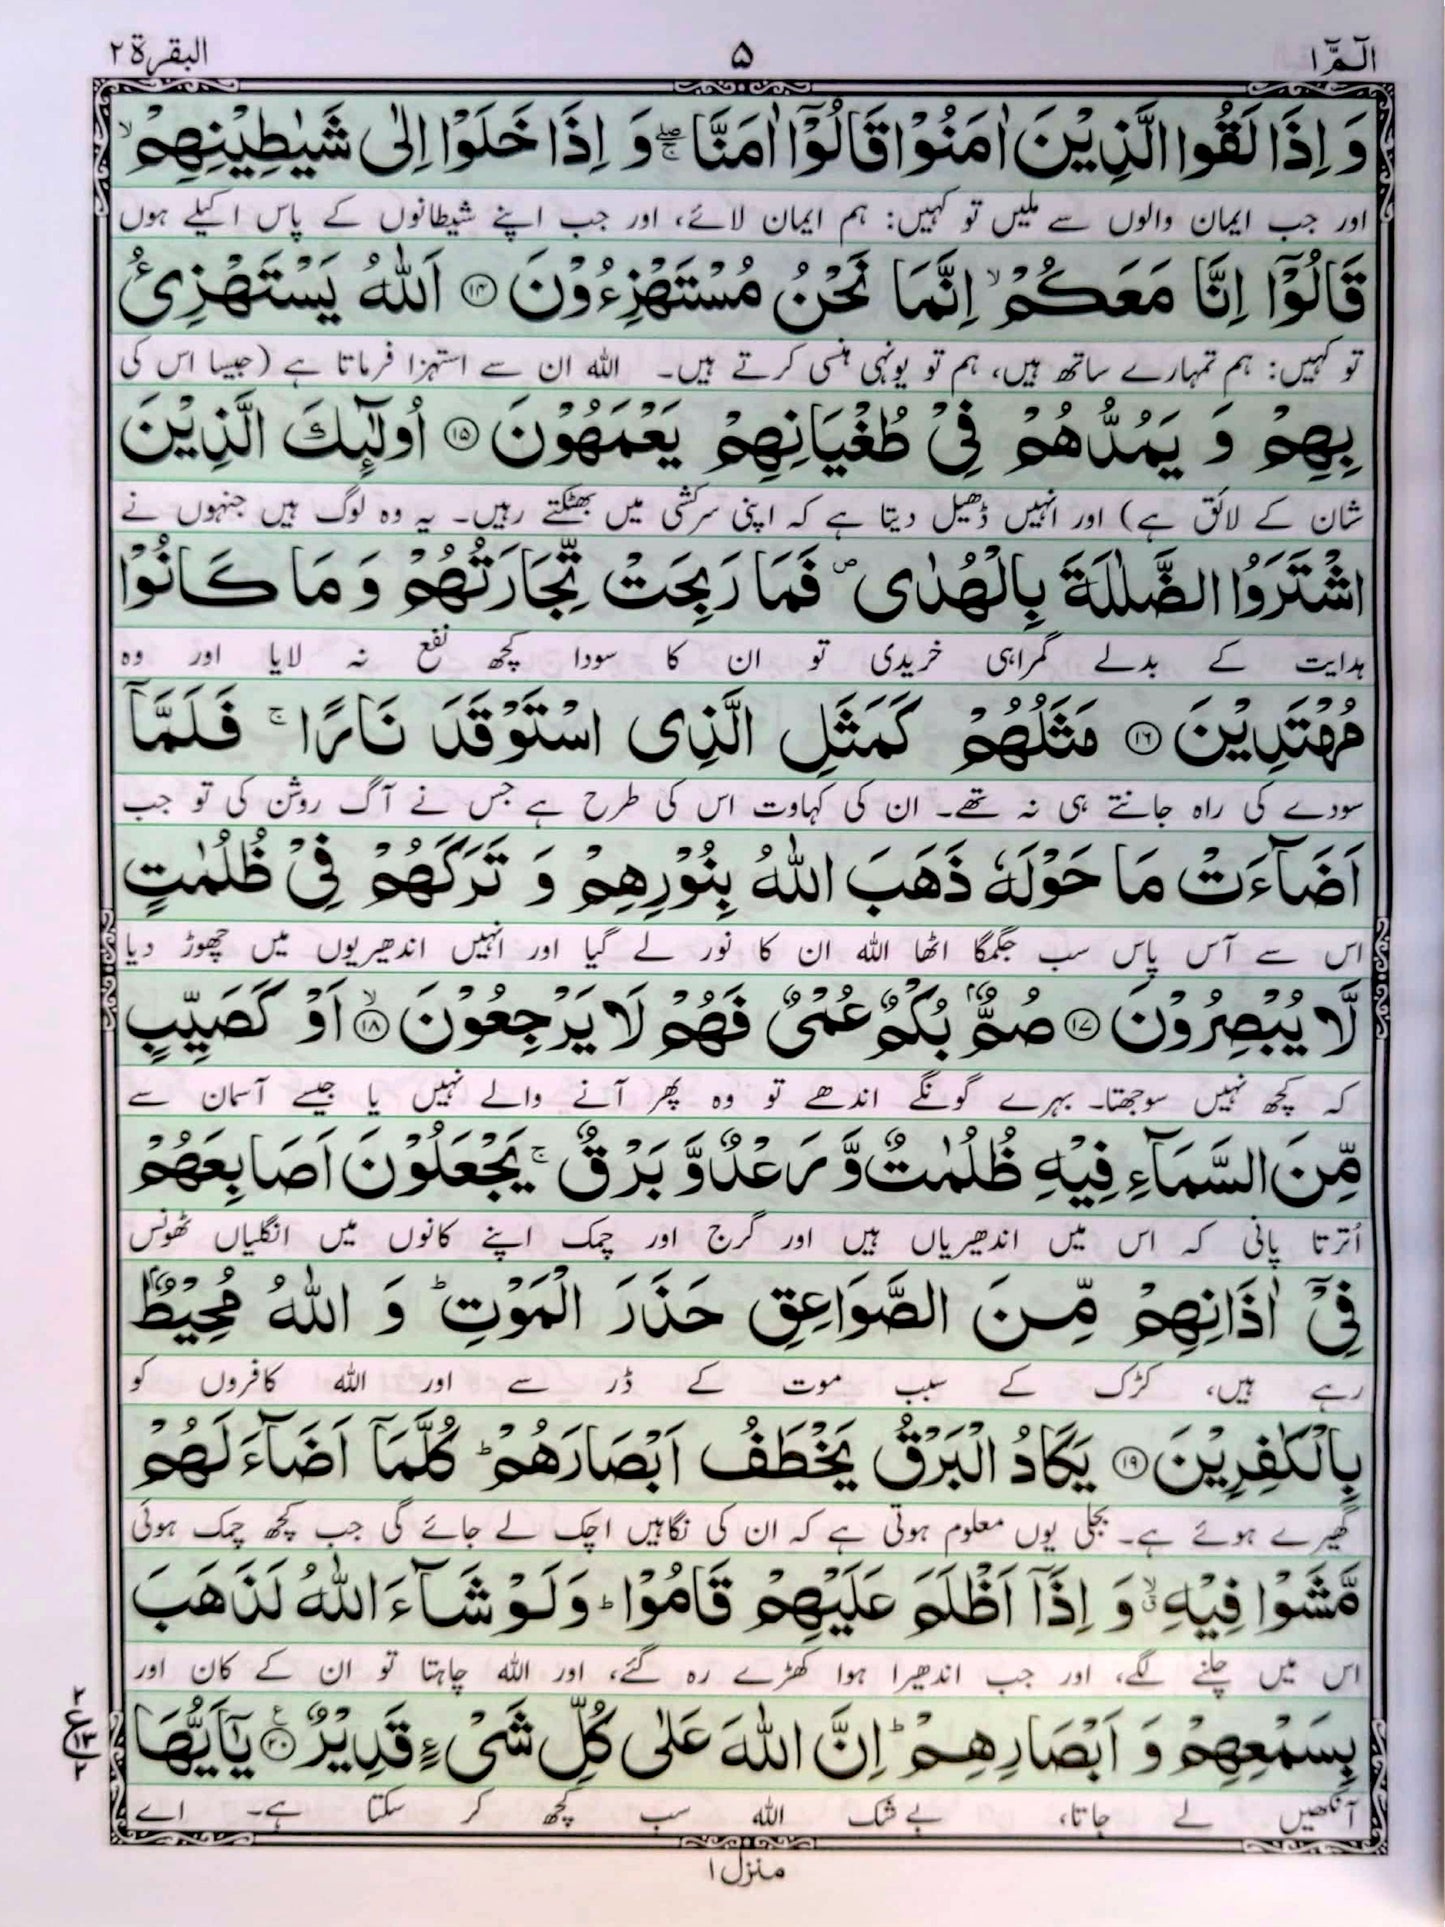 الٓمّٓ ۱
۵
البقرة ۲
وَ اِذَا لَقُوا الَّذِیْنَ اٰمَنُوْا قَالُوْۤا اٰمَنَّا ۚۖ وَ اِذَا خَلَوْا اِلٰى شَیٰطِیْنِهِمْ ۙ
اور جب ایمان والوں سے ملیں تو کہیں: ہم ایمان لائے، اور جب اپنے شیطانوں کے پاس اکیلے ہوں
قَالُوْۤا اِنَّا مَعَكُمْ ۙ اِنَّمَا نَحْنُ مُسْتَهْزِءُوْنَ ⑭ اَللّٰهُ یَسْتَهْزِئُ
تو کہیں: ہم تمہارے ساتھ ہیں، ہم تو یونہی ہنسی کرتے ہیں۔ اللہ ان سے استہزا فرماتا ہے (جیسا اس کی
بِهِمْ وَ یَمُدُّهُمْ فِیْ طُغْیَانِهِمْ یَعْمَهُوْنَ ⑮ اُولٰٓىٕكَ الَّذِیْنَ
شان کے لائق ہے) اور انہیں ڈھیل دیتا ہے کہ اپنی سرکشی میں بھٹکتے رہیں۔ یہ وہ لوگ ہیں جنہوں نے
اشْتَرَوُا الضَّلٰلَةَ بِالْهُدٰى ۪ فَمَا رَبِحَتْ تِّجَارَتُهُمْ وَ مَا كَانُوْا
ہدایت کے بدلے گمراہی خریدی تو ان کا سودا کچھ نفع نہ لایا اور وہ
مُهْتَدِیْنَ ⑯ مَثَلُهُمْ كَمَثَلِ الَّذِی اسْتَوْقَدَ نَارًا ۚ فَلَمَّاۤ
سودے کی راہ جانتے ہی نہ تھے۔ ان کی کہاوت اس کی طرح ہے جس نے آگ روشن کی تو جب
اَضَآءَتْ مَا حَوْلَهٗ ذَهَبَ اللّٰهُ بِنُوْرِهِمْ وَ تَرَكَهُمْ فِیْ ظُلُمٰتٍ
اس سے آس پاس سب جگمگا اٹھا اللہ ان کا نور لے گیا اور انہیں اندھیریوں میں چھوڑ دیا
لَّا یُبْصِرُوْنَ ⑰ صُمٌّۢ بُكْمٌ عُمْیٌ فَهُمْ لَا یَرْجِعُوْنَ ۙ⑱ اَوْ كَصَیِّبٍ
کہ کچھ نہیں سوجھتا۔ بہرے گونگے اندھے تو وہ پھر آنے والے نہیں یا جیسے آسمان سے
مِّنَ السَّمَآءِ فِیْهِ ظُلُمٰتٌ وَّ رَعْدٌ وَّ بَرْقٌ ۚ یَجْعَلُوْنَ اَصَابِعَهُمْ
اُترتا پانی کہ اس میں اندھیریاں ہیں اور گرج اور چمک اپنے کانوں میں انگلیاں ٹھونس
فِیْۤ اٰذَانِهِمْ مِّنَ الصَّوَاعِقِ حَذَرَ الْمَوْتِ ؕ وَ اللّٰهُ مُحِیْطٌۢ
رہے ہیں، کڑک کے سبب موت کے ڈر سے اور اللہ کافروں کو
بِالْكٰفِرِیْنَ ⑲ یَكَادُ الْبَرْقُ یَخْطَفُ اَبْصَارَهُمْ ؕ كُلَّمَاۤ اَضَآءَ لَهُمْ
گھیرے ہوئے ہے۔ بجلی یوں معلوم ہوتی ہے کہ ان کی نگاہیں اچک لے جائے گی جب کچھ چمک ہوئی
مَّشَوْا فِیْهِ ۙۗ وَ اِذَاۤ اَظْلَمَ عَلَیْهِمْ قَامُوْا ؕ وَ لَوْ شَآءَ اللّٰهُ لَذَهَبَ
اس میں چلنے لگے، اور جب اندھیرا ہوا کھڑے رہ گئے، اور اللہ چاہتا تو ان کے کان اور
بِسَمْعِهِمْ وَ اَبْصَارِهِمْ ؕ اِنَّ اللّٰهَ عَلٰى كُلِّ شَیْءٍ قَدِیْرٌ ⑳ یٰۤاَیُّهَا
آنکھیں لے جاتا، بے شک اللہ سب کچھ کر سکتا ہے۔ اے
۲
ع ۱۳
۲
منزل ۱